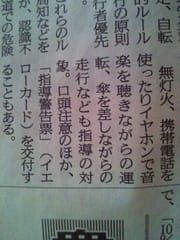 、自転
的ルール
の原則
行者優先
れらのル
周知などを
が、認識不
道での危険
で、
「10
無灯火、携帯電話を
使ったりイヤホンで音
楽を聴きながらの運
転、傘を差しながらの
走行なども指導の対
象。口頭注意のほか、
「指導警告票」（イエ
ローカード）を交付す
ることもある。